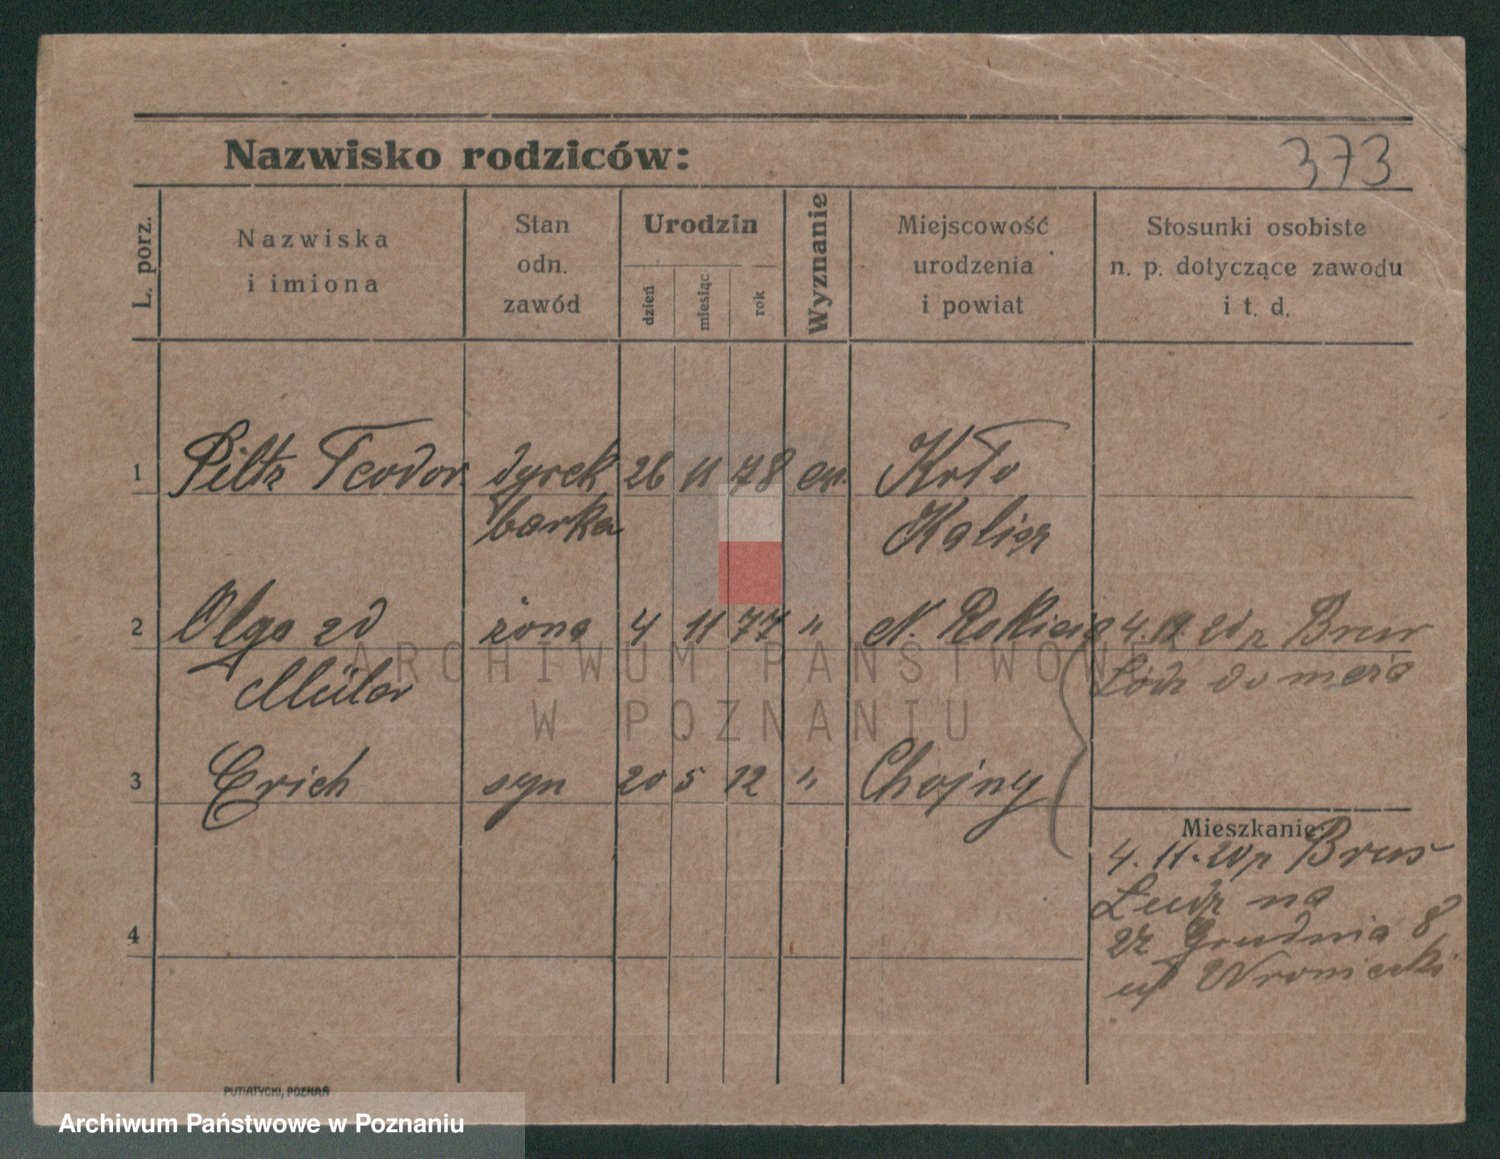 Nazwisko rodziców:
373
L. porz.
Nazwiska
i imiona
Stan
odn.
zawód
Urodzin
dzień
miesiąc
rok
Wyznanie
Miejscowość
urodzenia
i powiat
Stosunki osobiste
n. p. dotyczące zawodu
i t. d.
1 Piltz Teodor dyrek 26 11 78 ew. Koło
banka Kalisz
2 Olga zd żona 4 11 77 " N. Rokicie 4. 11. 20 z Brus
Müler Łódz do
3 Erich syn 20 5 12 " Chojny
Mieszkanie:
4. 11. 20 z Brus
na
4 27 Grudnia 8
Wroniecki
ARCHIWUM PAŃSTWOWE
W POZNANIU
PUTIATYCKI, POZNAŃ
Archiwum Państwowe w Poznaniu